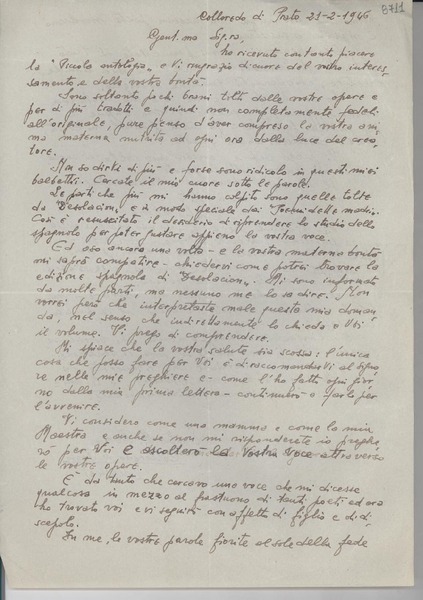 8711
Colloredo di Prato 21-2-1946
Gent.ma Sig.ra,
ho ricevuto con tanto piacere
la "Piccola antologia" e Vi ringrazio di cuore del vostro interes-
samento e della vostra bontà.
Sono soltanto pochi brani tolti dalle vostre opere e
per di più tradotti e quindi non completamente fedeli
all'originale, pure penso d'aver compreso la vostra ani-
ma materna nutrita ad ogni ora dalla luce del crea-
tore.
Ma so dirvi di più e forse sono ridicolo in questi miei
balbettii. Cercate il mio cuore sotto le parole.
Le parti che più mi hanno colpito sono quelle tolte
da "Desolacion" e in modo speciale dai "Poemi delle madri".
Così è resuscitato il desiderio di riprendere lo studio dello
spagnolo per poter gustare appieno la vostra voce.
Ed oso ancora una volta - e la vostra materna bontà
mi saprà compatire - chiedervi come potrei trovare la
edizione spagnola di "Desolacion". Mi sono informato
da molte parti, ma nessuno me lo sa dire. Non
vorrei però che interpretaste male questa mia doman-
da, nel senso che indirettamente lo chiedo a Voi
il volume. Vi prego di comprendere.
Mi spiace che la vostra salute sia scossa: l'unica
cosa che posso fare per Voi è di raccomandarvi al Signo-
re nelle mie preghiere e - come l'ho fatto ogni gior-
no dalla mia prima lettera - continuerò a farlo per
l'avvenire.
Vi considero come una mamma e come la mia
Maestra e anche se non mi risponderete io preghe-
rò per Voi e ascolterò la Vostra Voce attraverso
le vostre opere.
È da tanto che cercavo una voce che mi dicesse
qualcosa in mezzo al frastuono di tanti poeti ed ora
ho trovato voi e vi seguirò con affetto di figlio e di di-
scepolo.
In me, le vostre parole fiorite al sole della fede